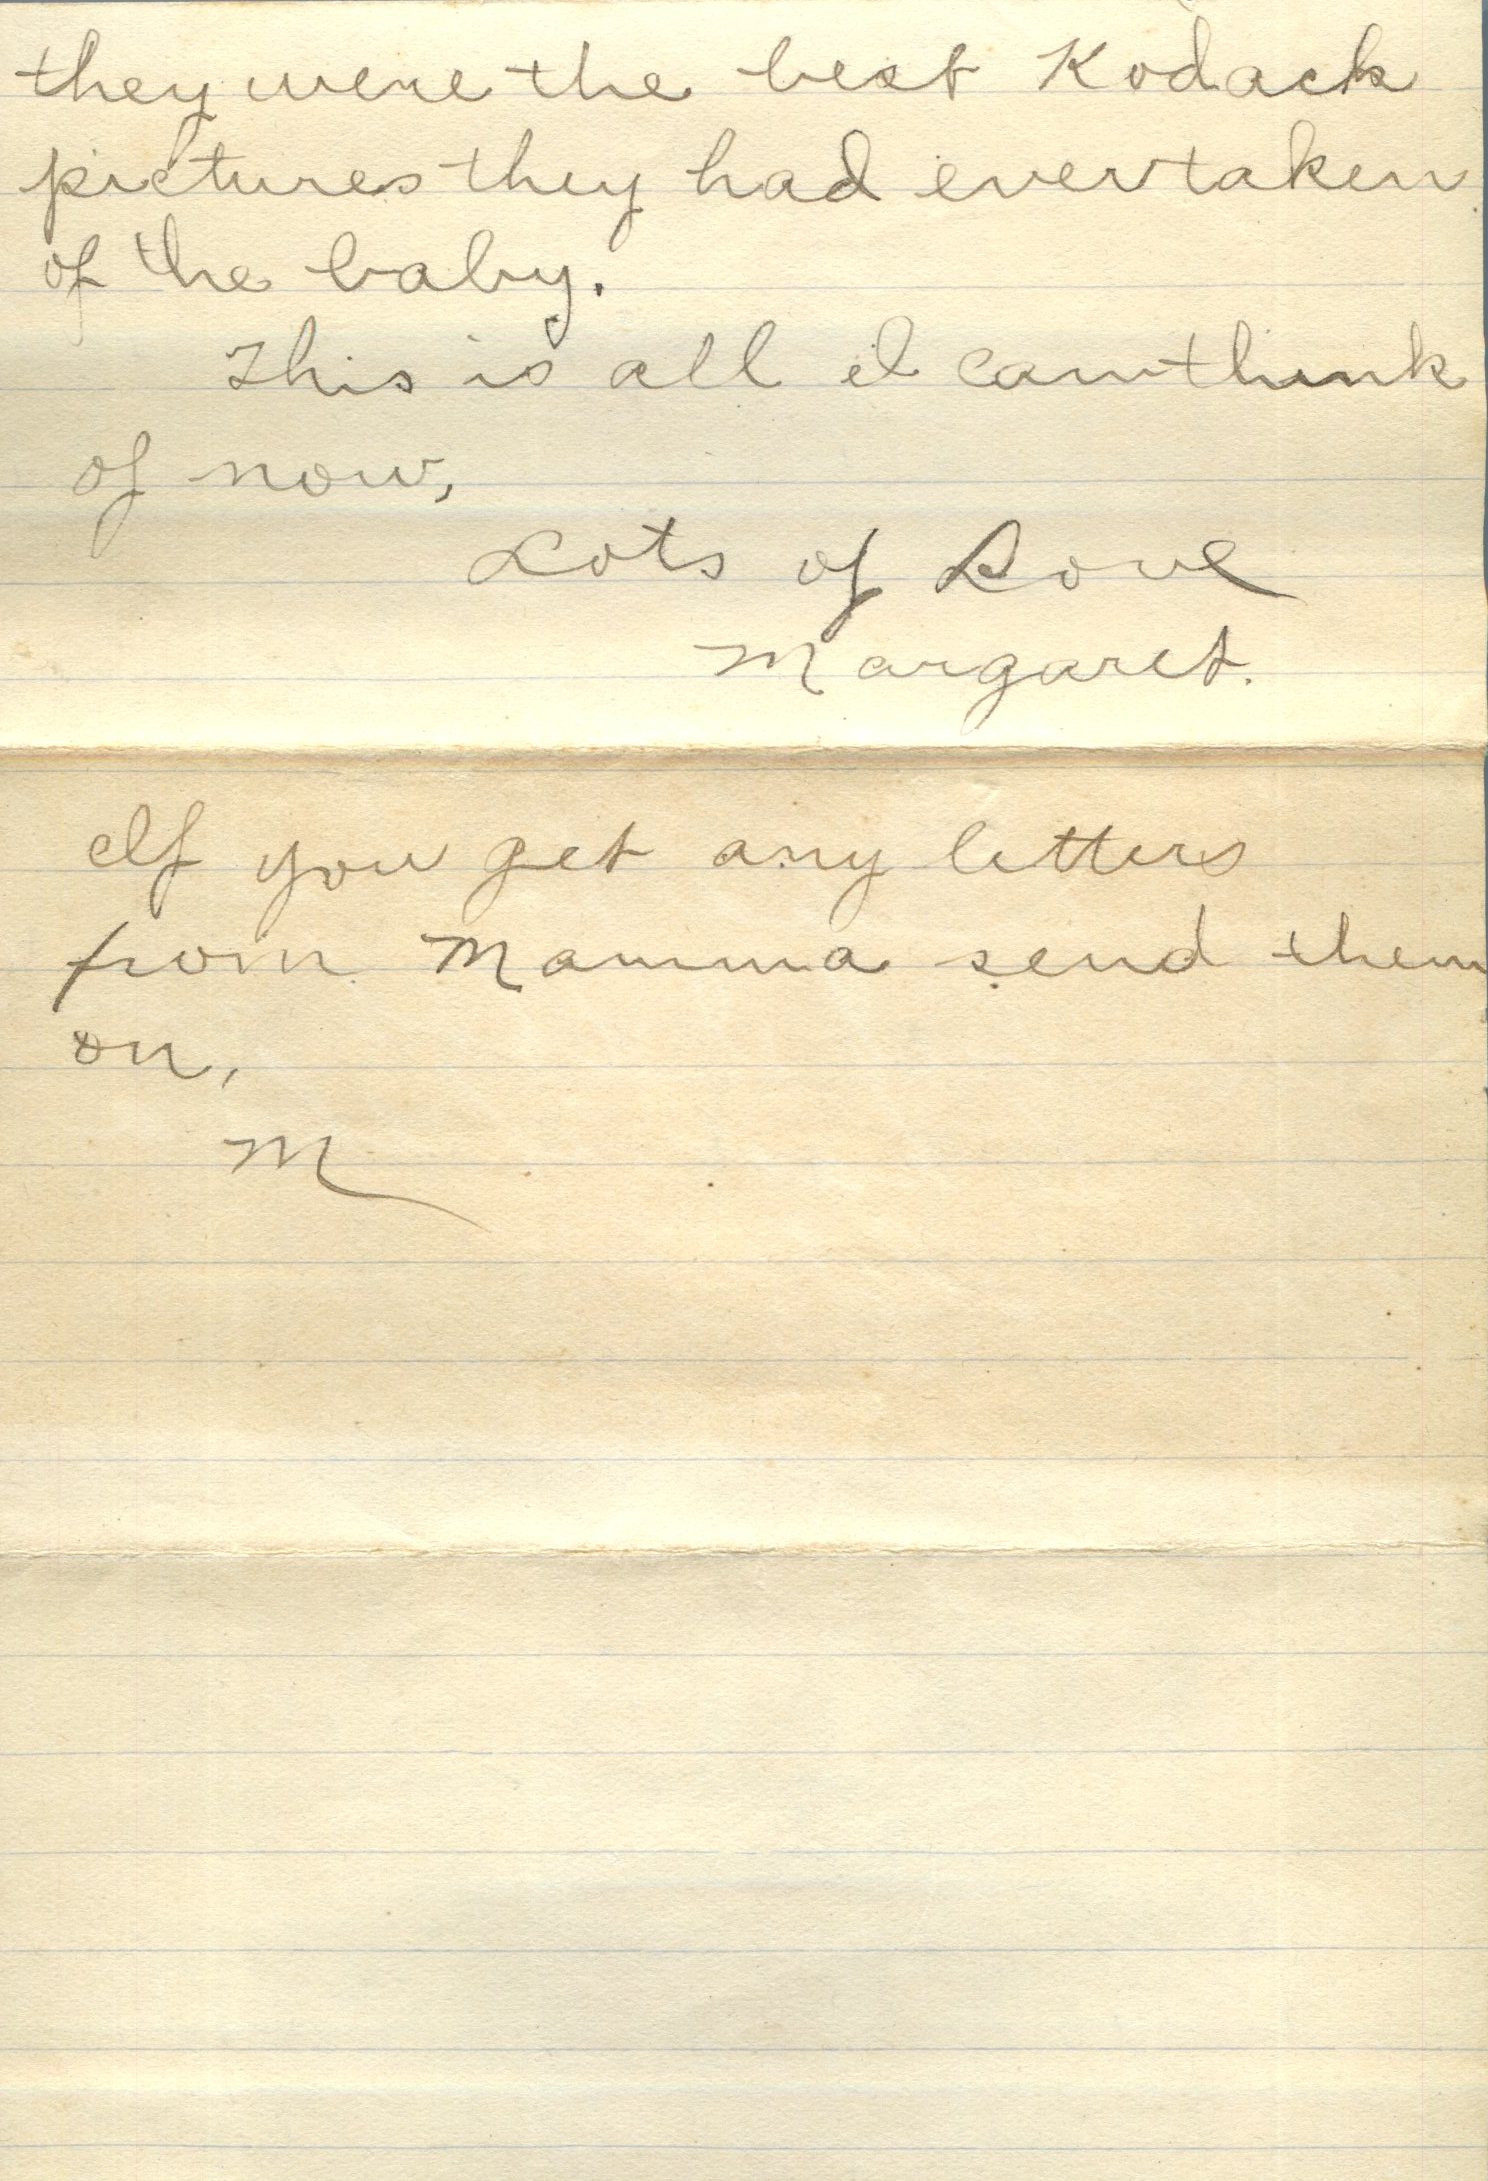 they were the best Kodack
pictures they had ever taken
of the baby.
This is all I can think
of now,
Lots of Love
Margaret.
If you get any letters
from Mamma send them
on,
M